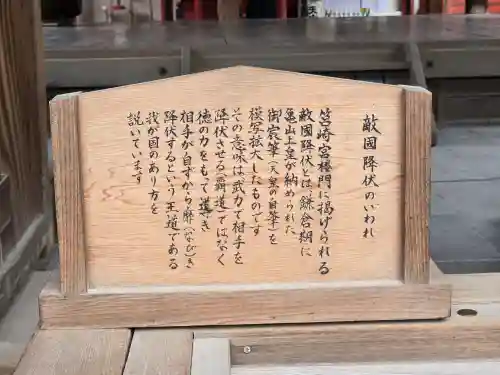 敵国降伏のいわれ
筥崎宮楼門に掲げられる
敵国降伏とは、鎌倉期に
亀山上皇が納められた
御宸筆（天皇の自筆）を
模写拡大したものです
その意味は武力で相手を
降伏させる（覇道）ではなく
徳の力をもって導き
相手が自ずから靡（なび）き
降伏するという王道である
我が国のあり方を
説いています